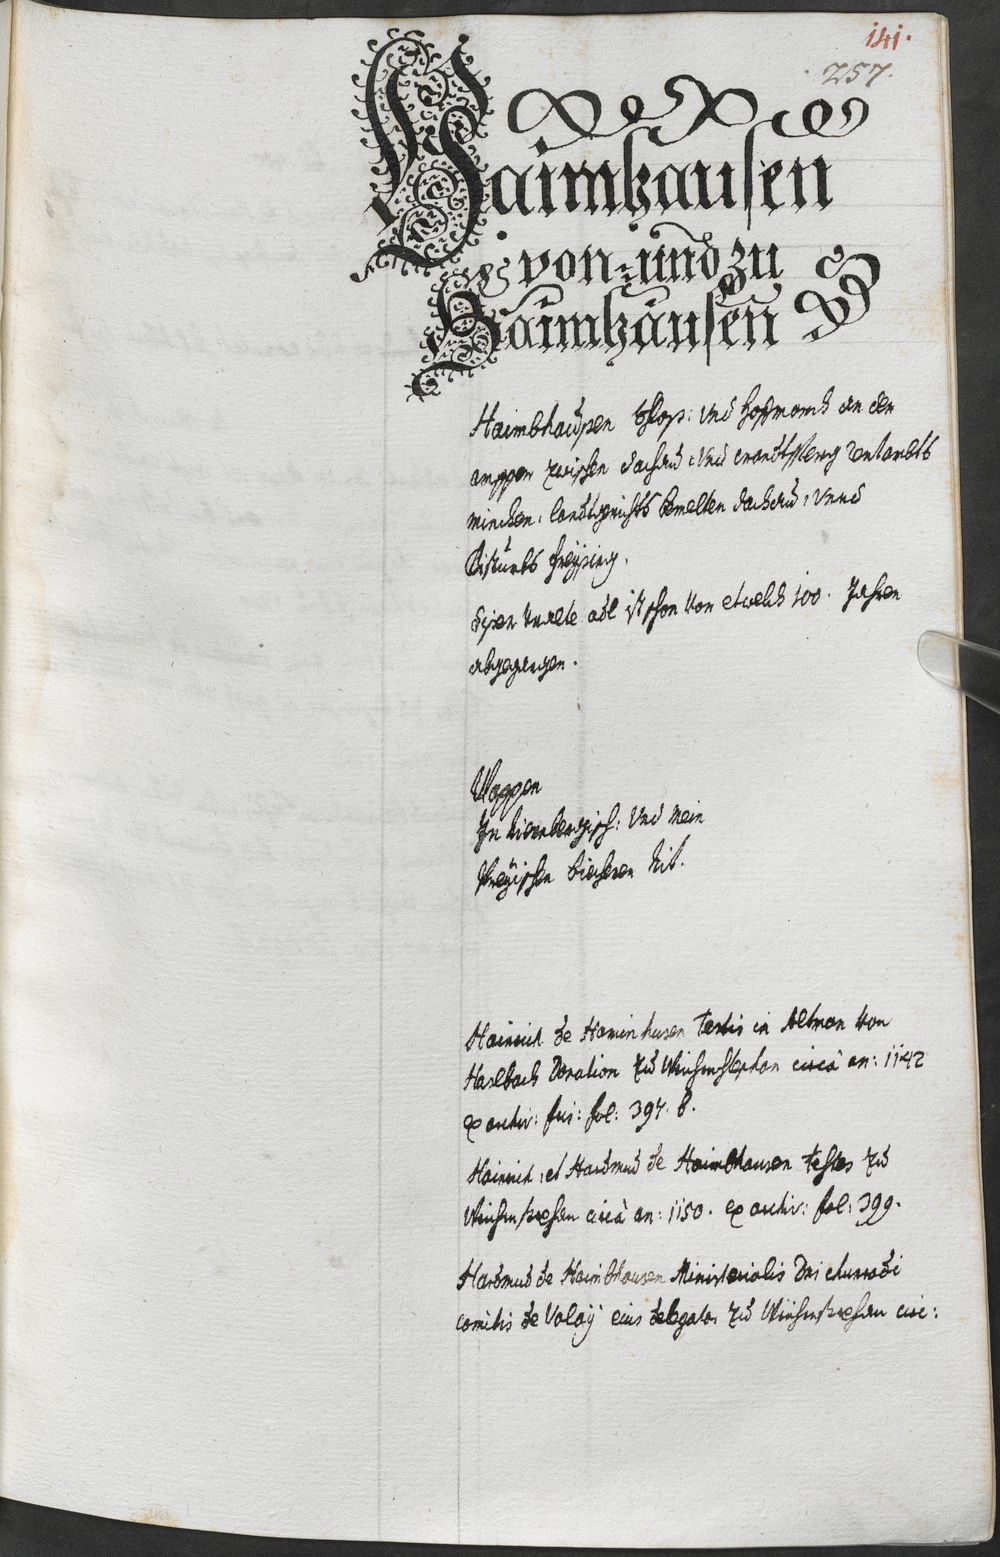 141.
257.
Haimhausen
von und zu
Haimhausen
Haimbhausen Schloss: Und hoffmarch an der
amper zwischen dachau: Und Rentambts
minchen, landtgerichts bemelten dachau, Unnd
Bistumbs Freysing.
diser Uralte adl ist schon Von etwelch 100. Jahren
abgegangen.
Wappen
In Und mein
biecheren nit.
Hainrich de Haminhusen testis in Altman Von
Haslbach Donation zu Weichenstephan circa an: 1142
ex archiv: fris: fol: 397. b.
Hainrich, et Hardmud de Haimbhausen testes zu
Weichenstephan circa an: 1150. ex archiv: fol: 399.
Hardmud de Haimbhausen Ministerialis Dni chunradi
comitis de Valaÿ eius delegator zu Weichenstephan circ: